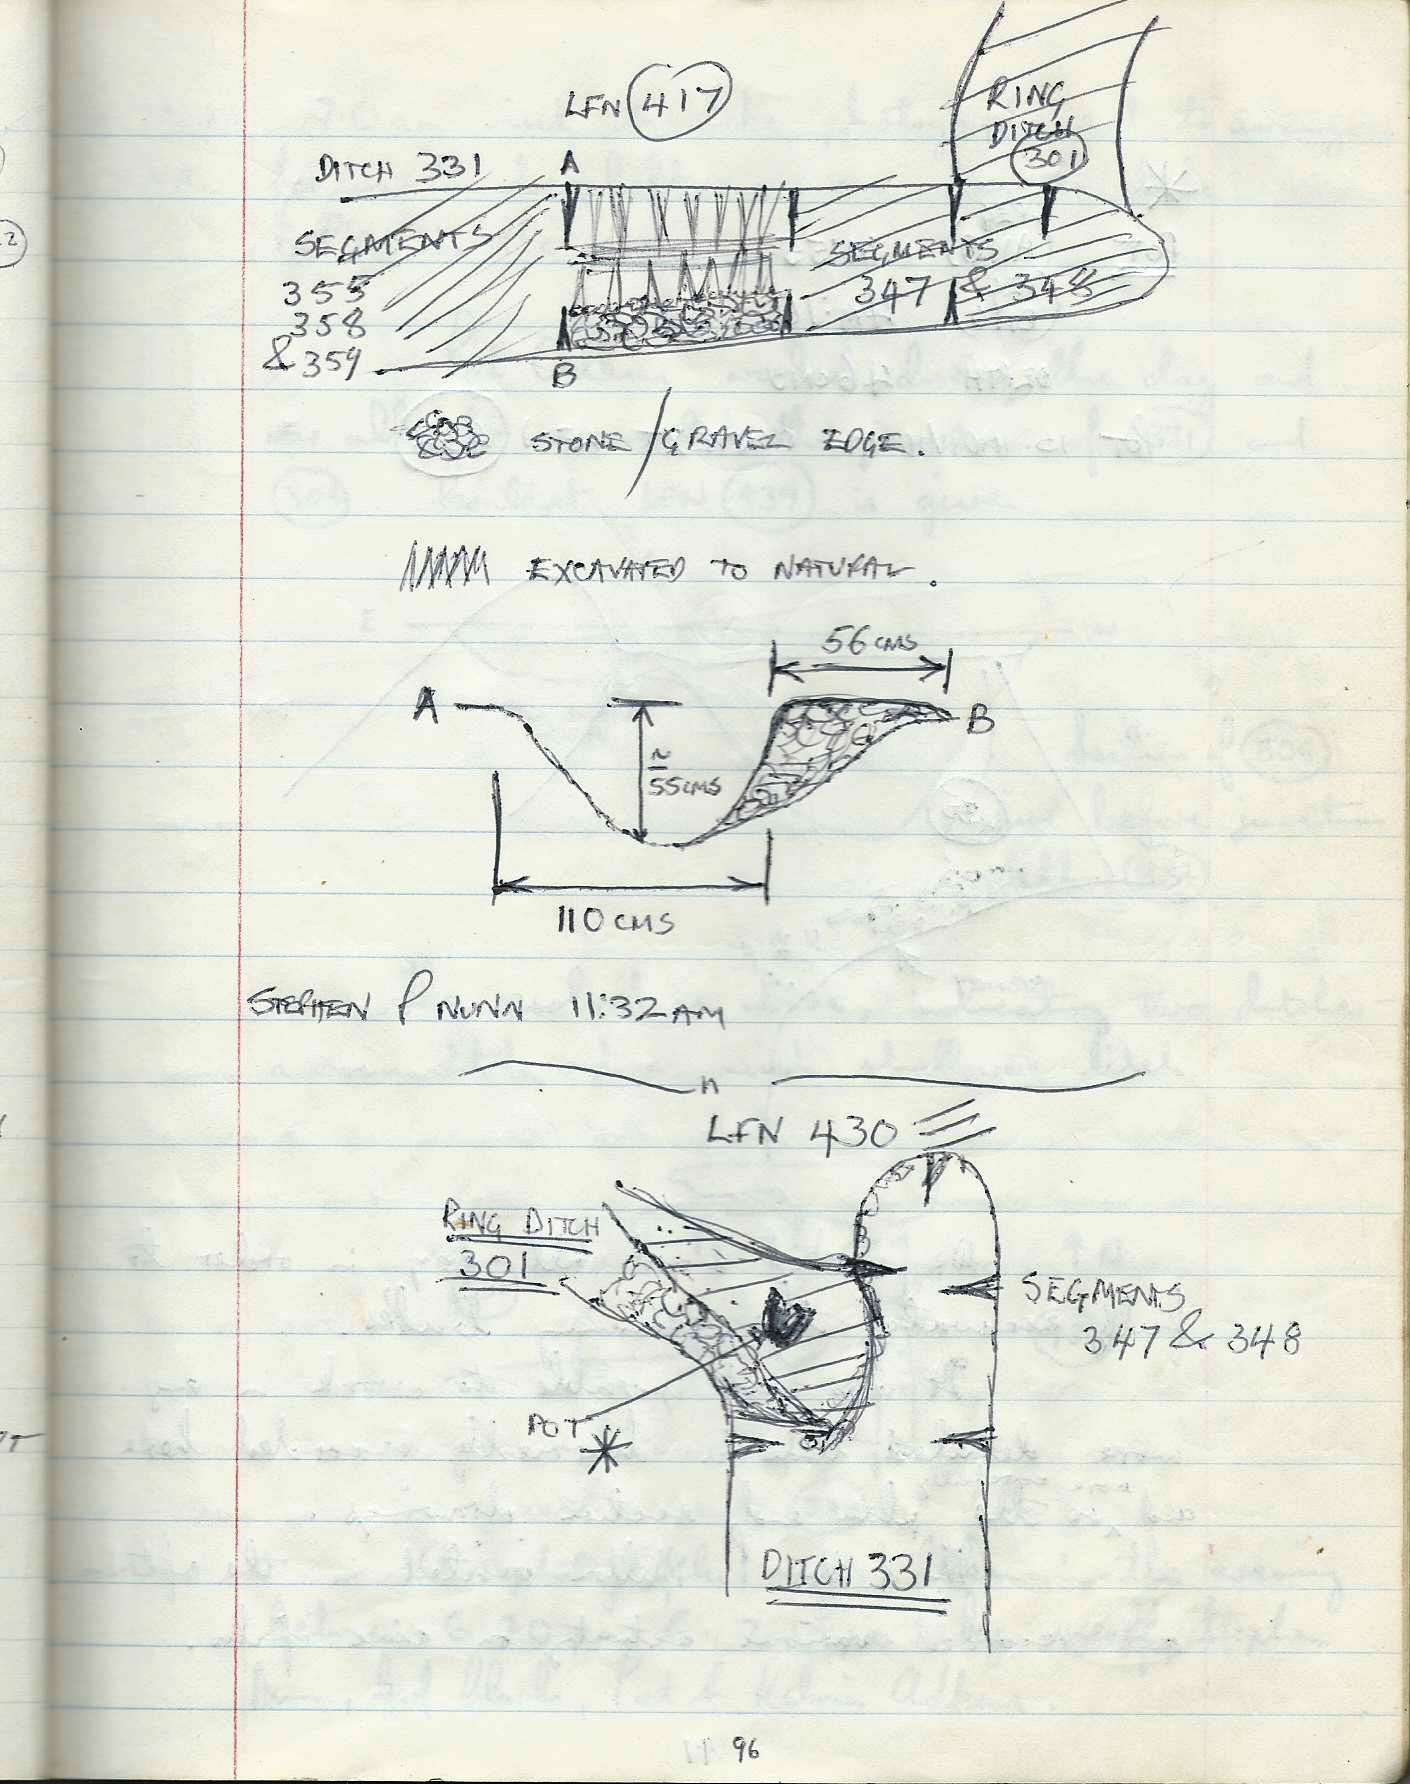 LFN 417
RING
DITCH
301
DITCH 331
A
SEGMENTS
355
358
& 359
SEGMENTS
347 & 348
B
STONE/GRAVEL EDGE.
EXCAVATED TO NATURAL.
56 CMS
A
B
≈
55 CMS
110 CMS
STEPHEN P NUNN 11:32AM
LFN 430
RING DITCH
301
SEGMENTS
347 & 348
POT
DITCH 331
96